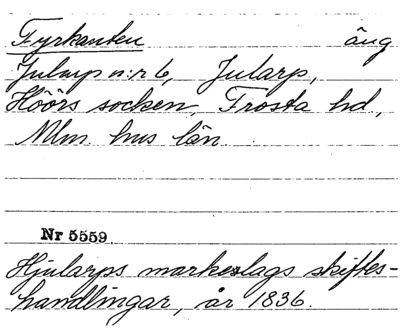 Fyrkanten äng
Jularp n:r 6, Jularp,
Höörs socken, Frosta hd,
Mlm. hus län.
Nr 5559
Hjularps markeslags skiftes-
handlingar, år 1836.